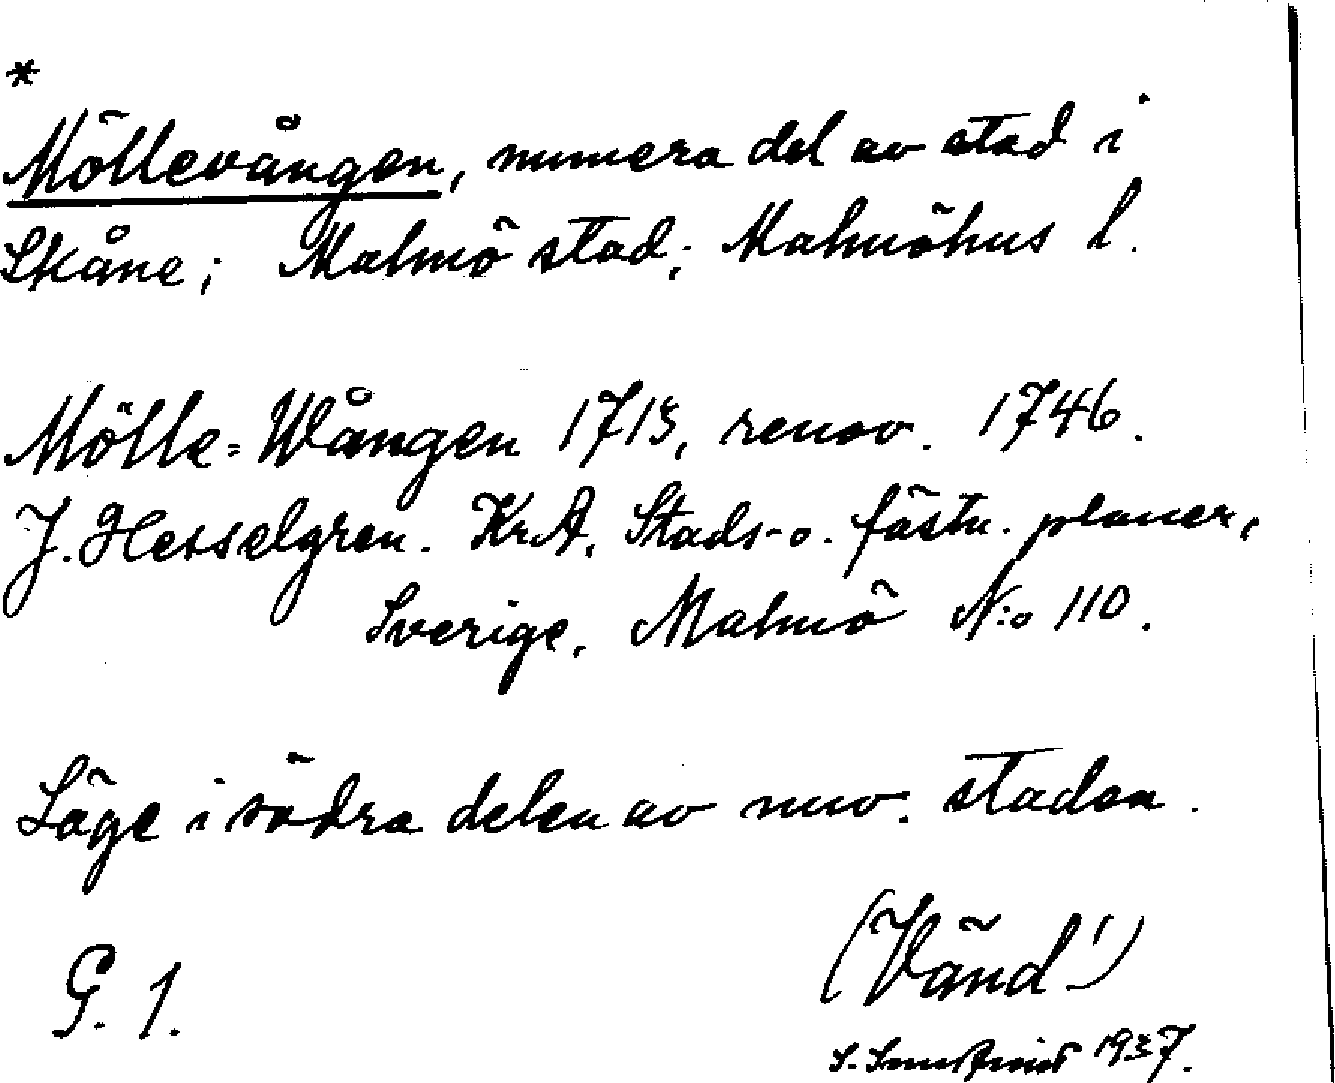 *
Möllevången, numera del av stad i
Skåne; Malmö stad; Malmöhus l.
Mölle=Wången 1713, renov. 1746.
J. Hesselgren. KrA, Stads- o. fästn. planer,
Sverige, Malmö N:o 110.
Läge i södra delen av nuv. staden.
G. 1.
(Vänd!)
S. 1937.